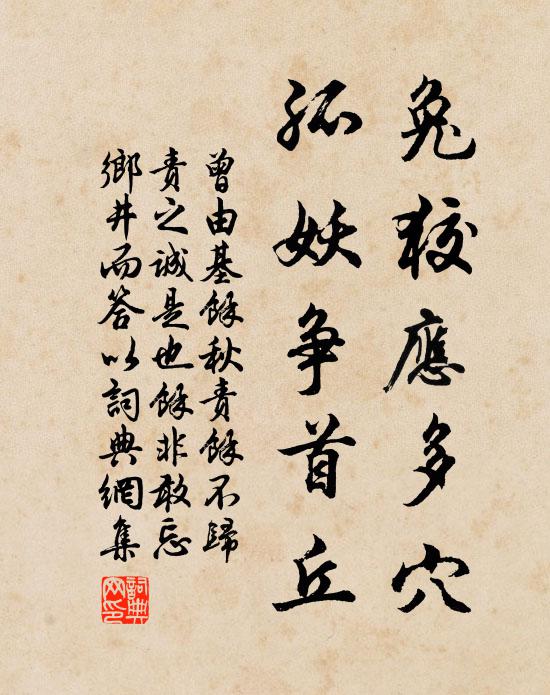 兔狡應多穴
孤妖争首丘
曾由基餘秋責餘不歸
責之誠是也餘非敢忘
鄉井而答以詞典網集
詞典网印